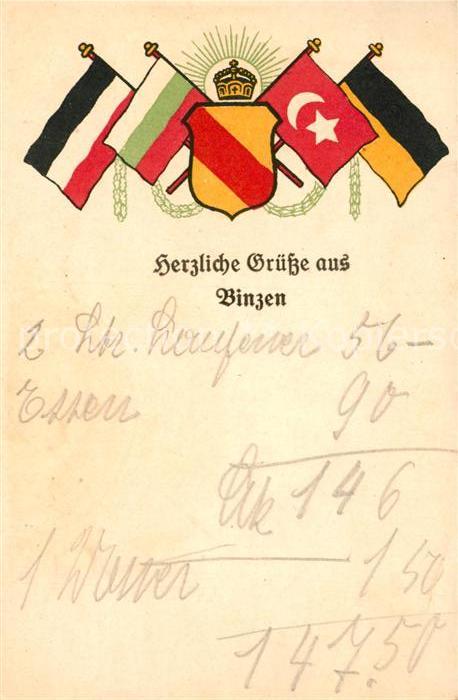 Herzliche Grüße aus
Binzen
2 Ltr. Laufener 56-
Essen 90
Mk 146
1 Wasser 1 50
147.50